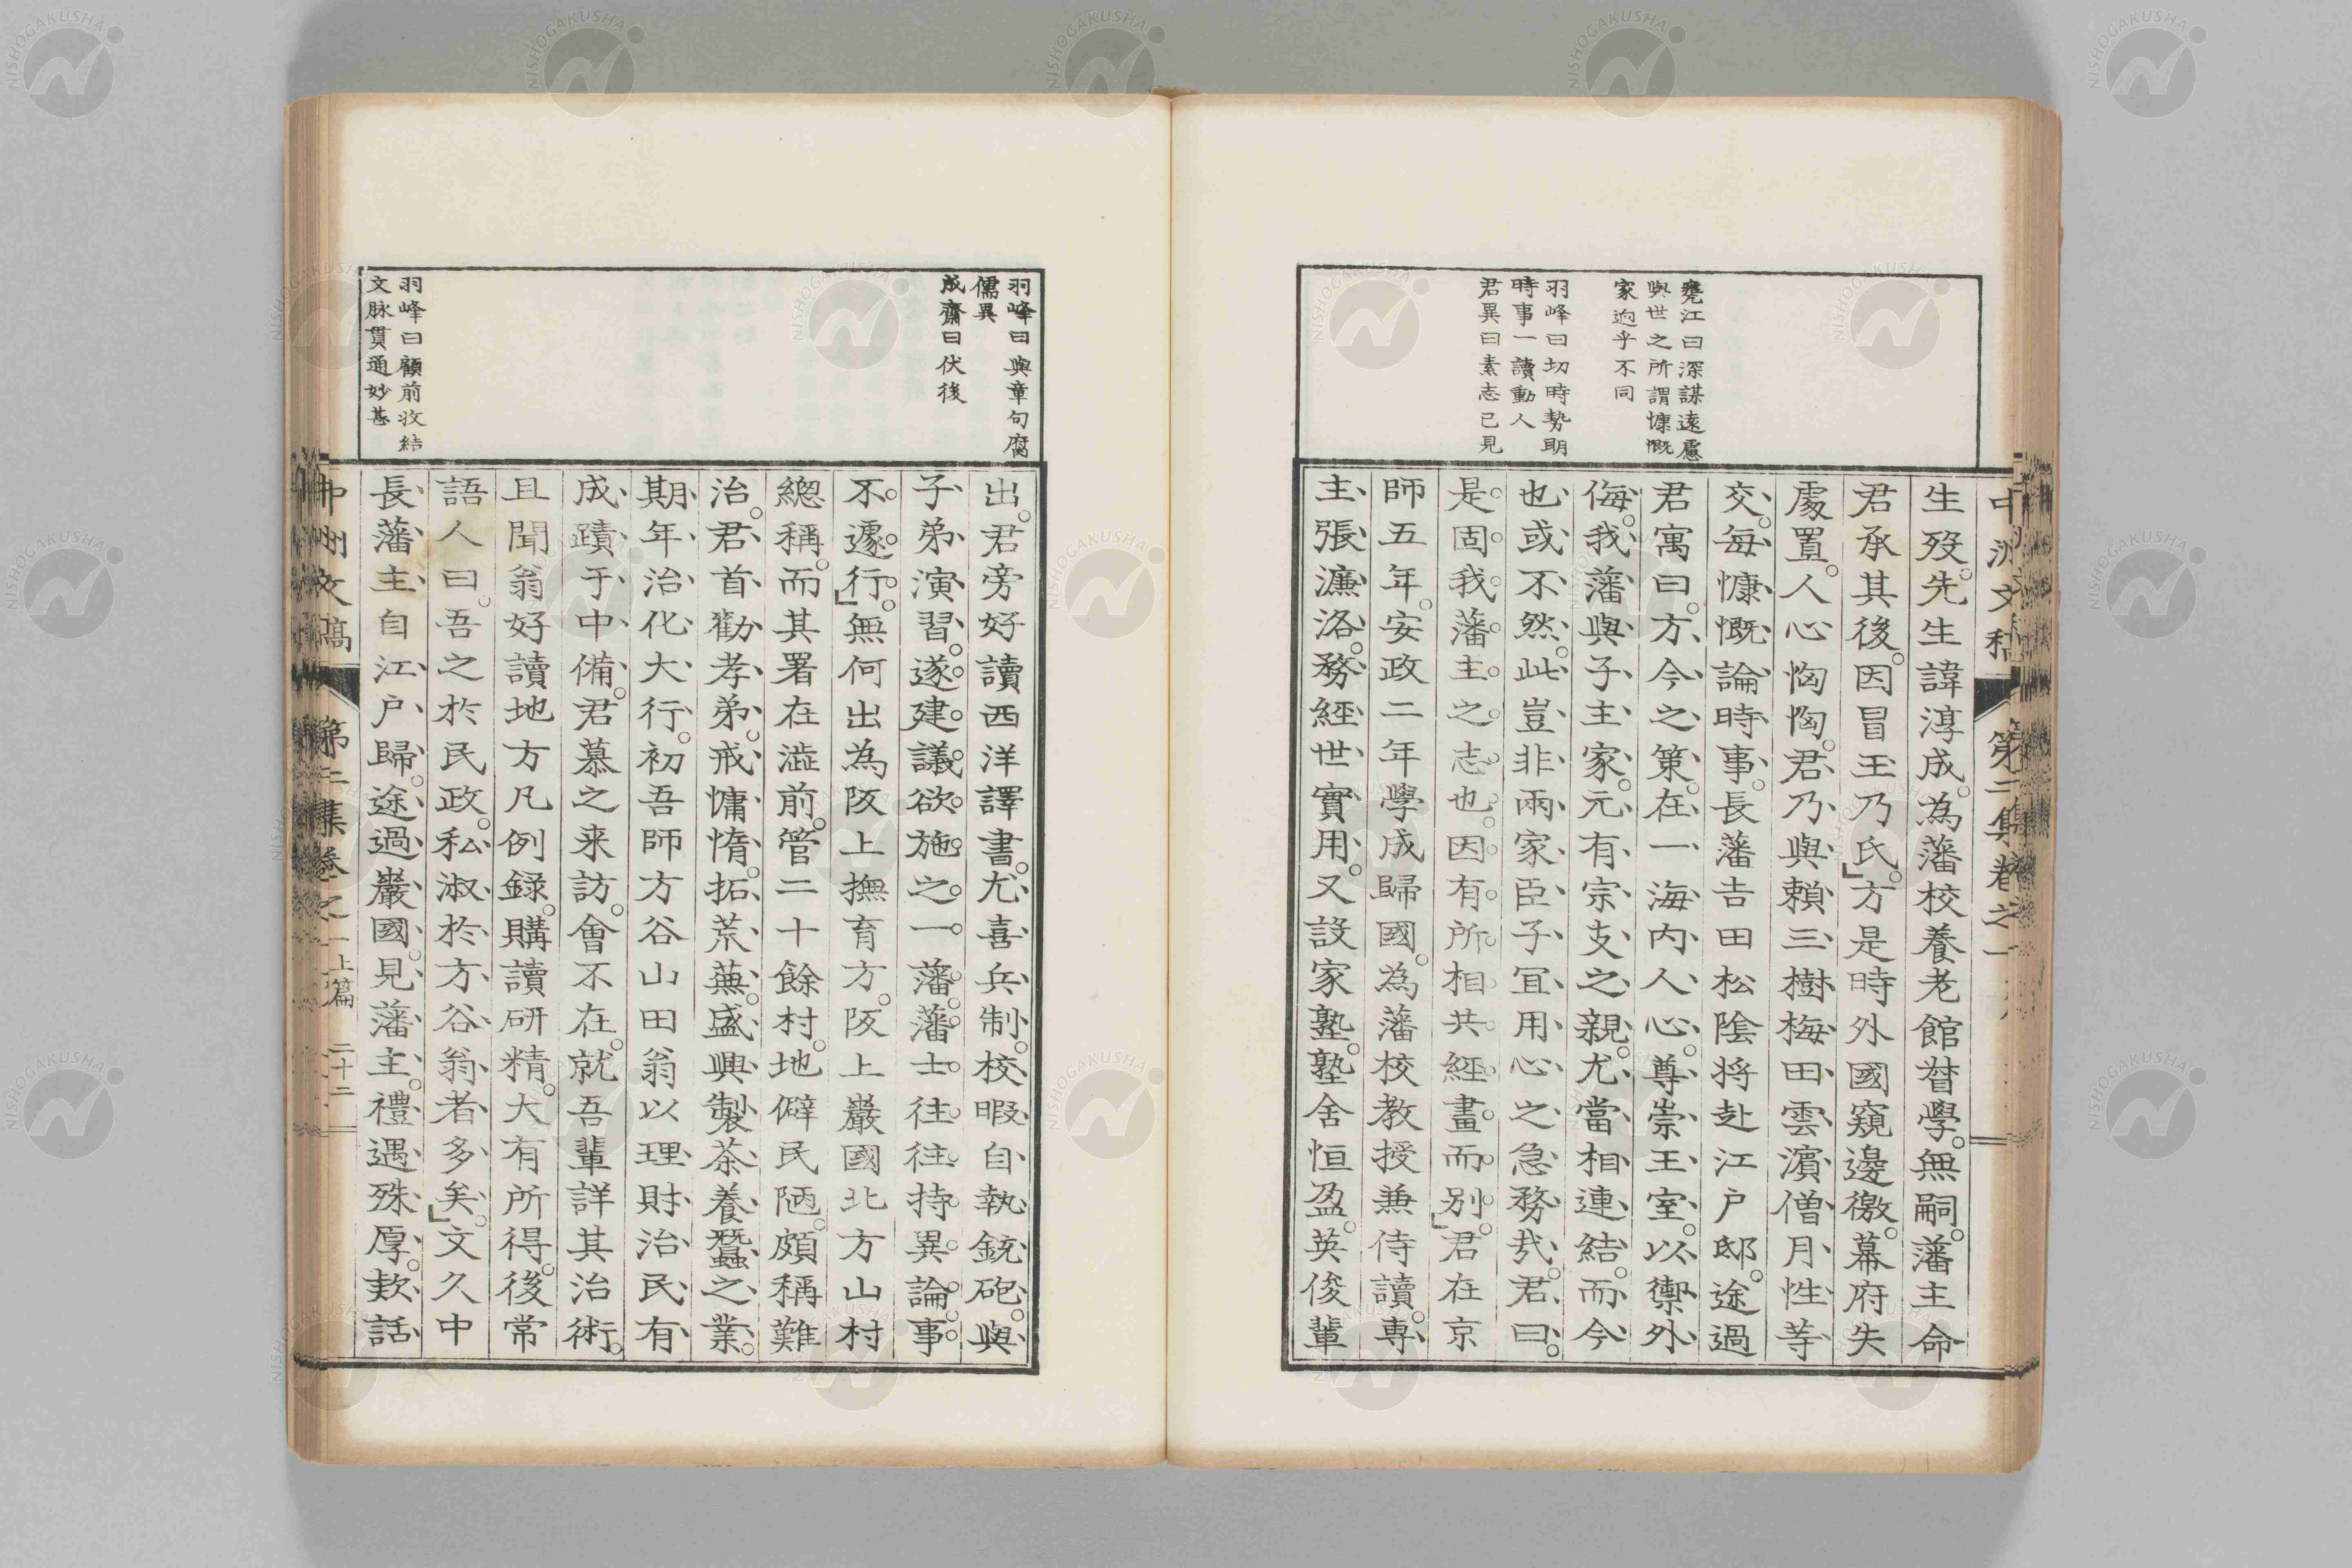 甕江曰深謀遠慮
與世之所謂慷慨
家逈乎不同
羽峰曰切時勢明
時事一讀動人
君異曰素志已見
生歿。先生諱淳成。為藩校養老館督學。無嗣。藩主命
君承其後。因冒玉乃氏。方是時外國窺邊徼。幕府失
處置。人心恟恟。君乃與賴三樹梅田雲濱僧月性等
交。每慷慨論時事。長藩吉田松陰将赴江戶邸。途過
君寓曰。方今之策。在一海内人心。尊崇王室。以禦外
侮。我藩與子主家。元有宗支之親。尤當相連結。而今
也或不然。此豈非兩家臣子宜用心之急務㢤。君曰。
是固我藩主之志也。因有所相共經畫。而別。君在京
師五年。安政二年學成歸國。為藩校教授兼侍讀。專
主張濂洛。務經世實用。又設家塾。塾舍恒盈。英俊輩
中洲文稿 第二集卷之一
羽峰曰與章句腐
儒異
成齋曰伏後
羽峰曰顧前收結
文脉貫通妙甚
出。君旁好讀西洋譯書。尤喜兵制。校暇自執銃砲。與
子弟演習。遂建議欲施之一藩。藩士往往持異論。事
不遽行。無何出為阪上撫育方。阪上巖國北方山村
總稱。而其署在澁前。管二十餘村。地僻民陋。頗稱難
治。君首勸孝弟。戒慵惰。拓荒蕪。盛興製茶養蠶之業。
期年治化大行。初吾師方谷山田翁以理財治民有
成蹟于中備。君慕之来訪。會不在。就吾輩詳其治術。
且聞翁好讀地方凡例録。購讀研精。大有所得。後常
語人曰。吾之於民政。私淑於方谷翁者多矣。文久中
長藩主自江戶歸。途過巖國。見藩主。禮遇殊厚。欵話
中洲文稿 第二集卷之一上篇 二十二